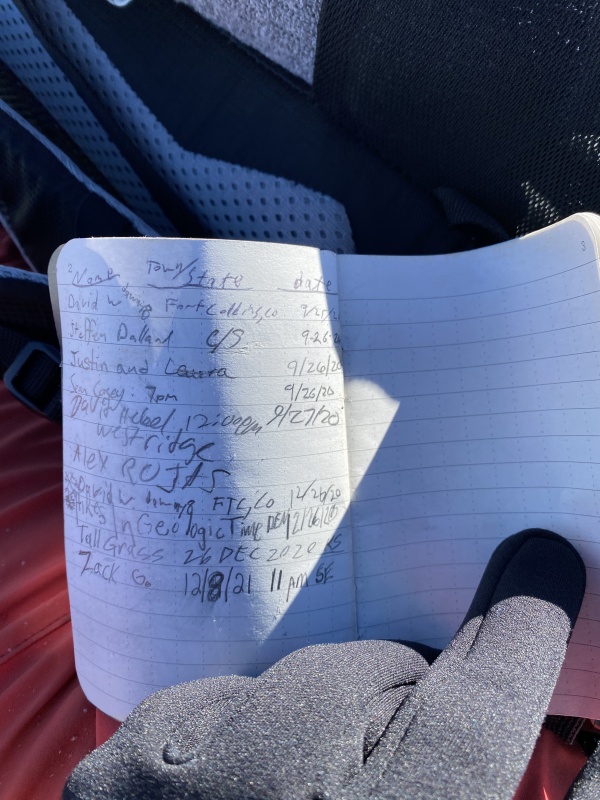 Name Town/State date
David W downing Fort Collins, Co 9/25/20
Steffen Dalland C/S 9-26-20
Justin and Laura 9/26/20
Sean Casey: 7pm 9/26/20
David Hebel, 12:00pm 9/27/20
west ridge
Alex ROJAS
David W downing FTC, Co 12/26/20
Hikes in Geologic Time DEN 12/26/20
Tall Grass 26 DEC 2020 KS
Zack G. 12/8/21 11 am
3